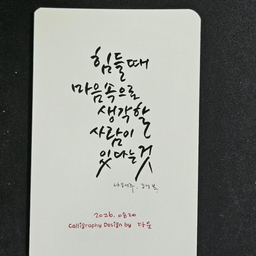 힘들때
마음속으로
생각할
사람이
있다는것
나태주. 행복
2026. 0820
Calligraphy Design by 다온